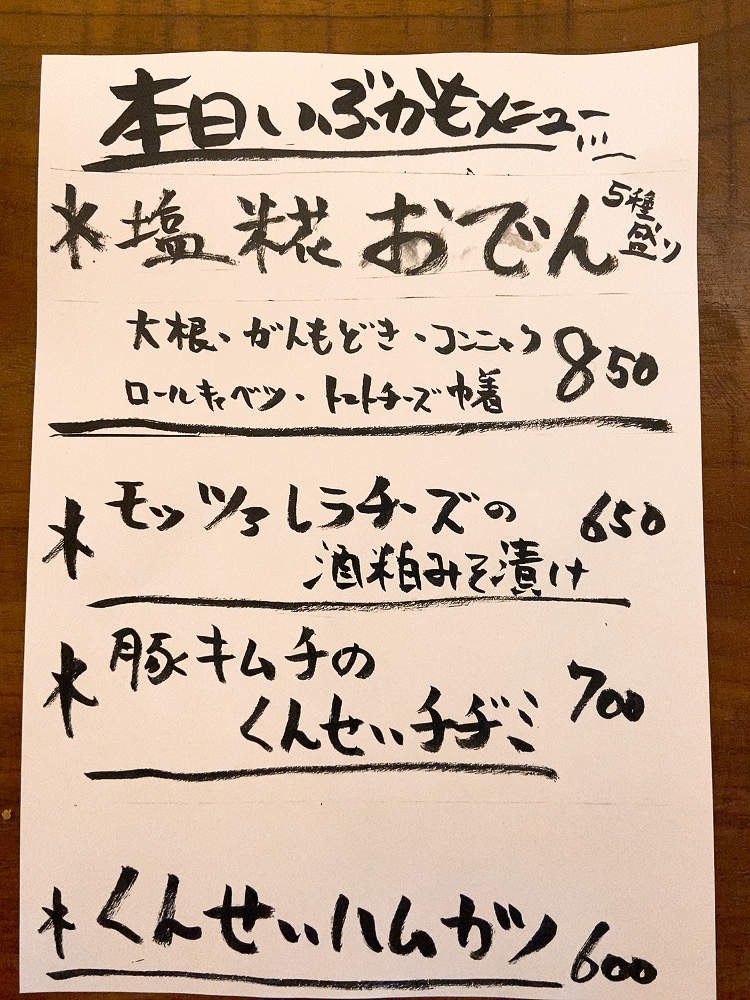 本日いぶかもメニュー
*塩糀おでん 5種盛り
大根・がんもどき・コンニャク 850
ロールキャベツ・トマトチーズ巾着
*モッツァレラチーズの 650
酒粕みそ漬け
*豚キムチの
くんせいチヂミ 700
*くんせいハムカツ 600